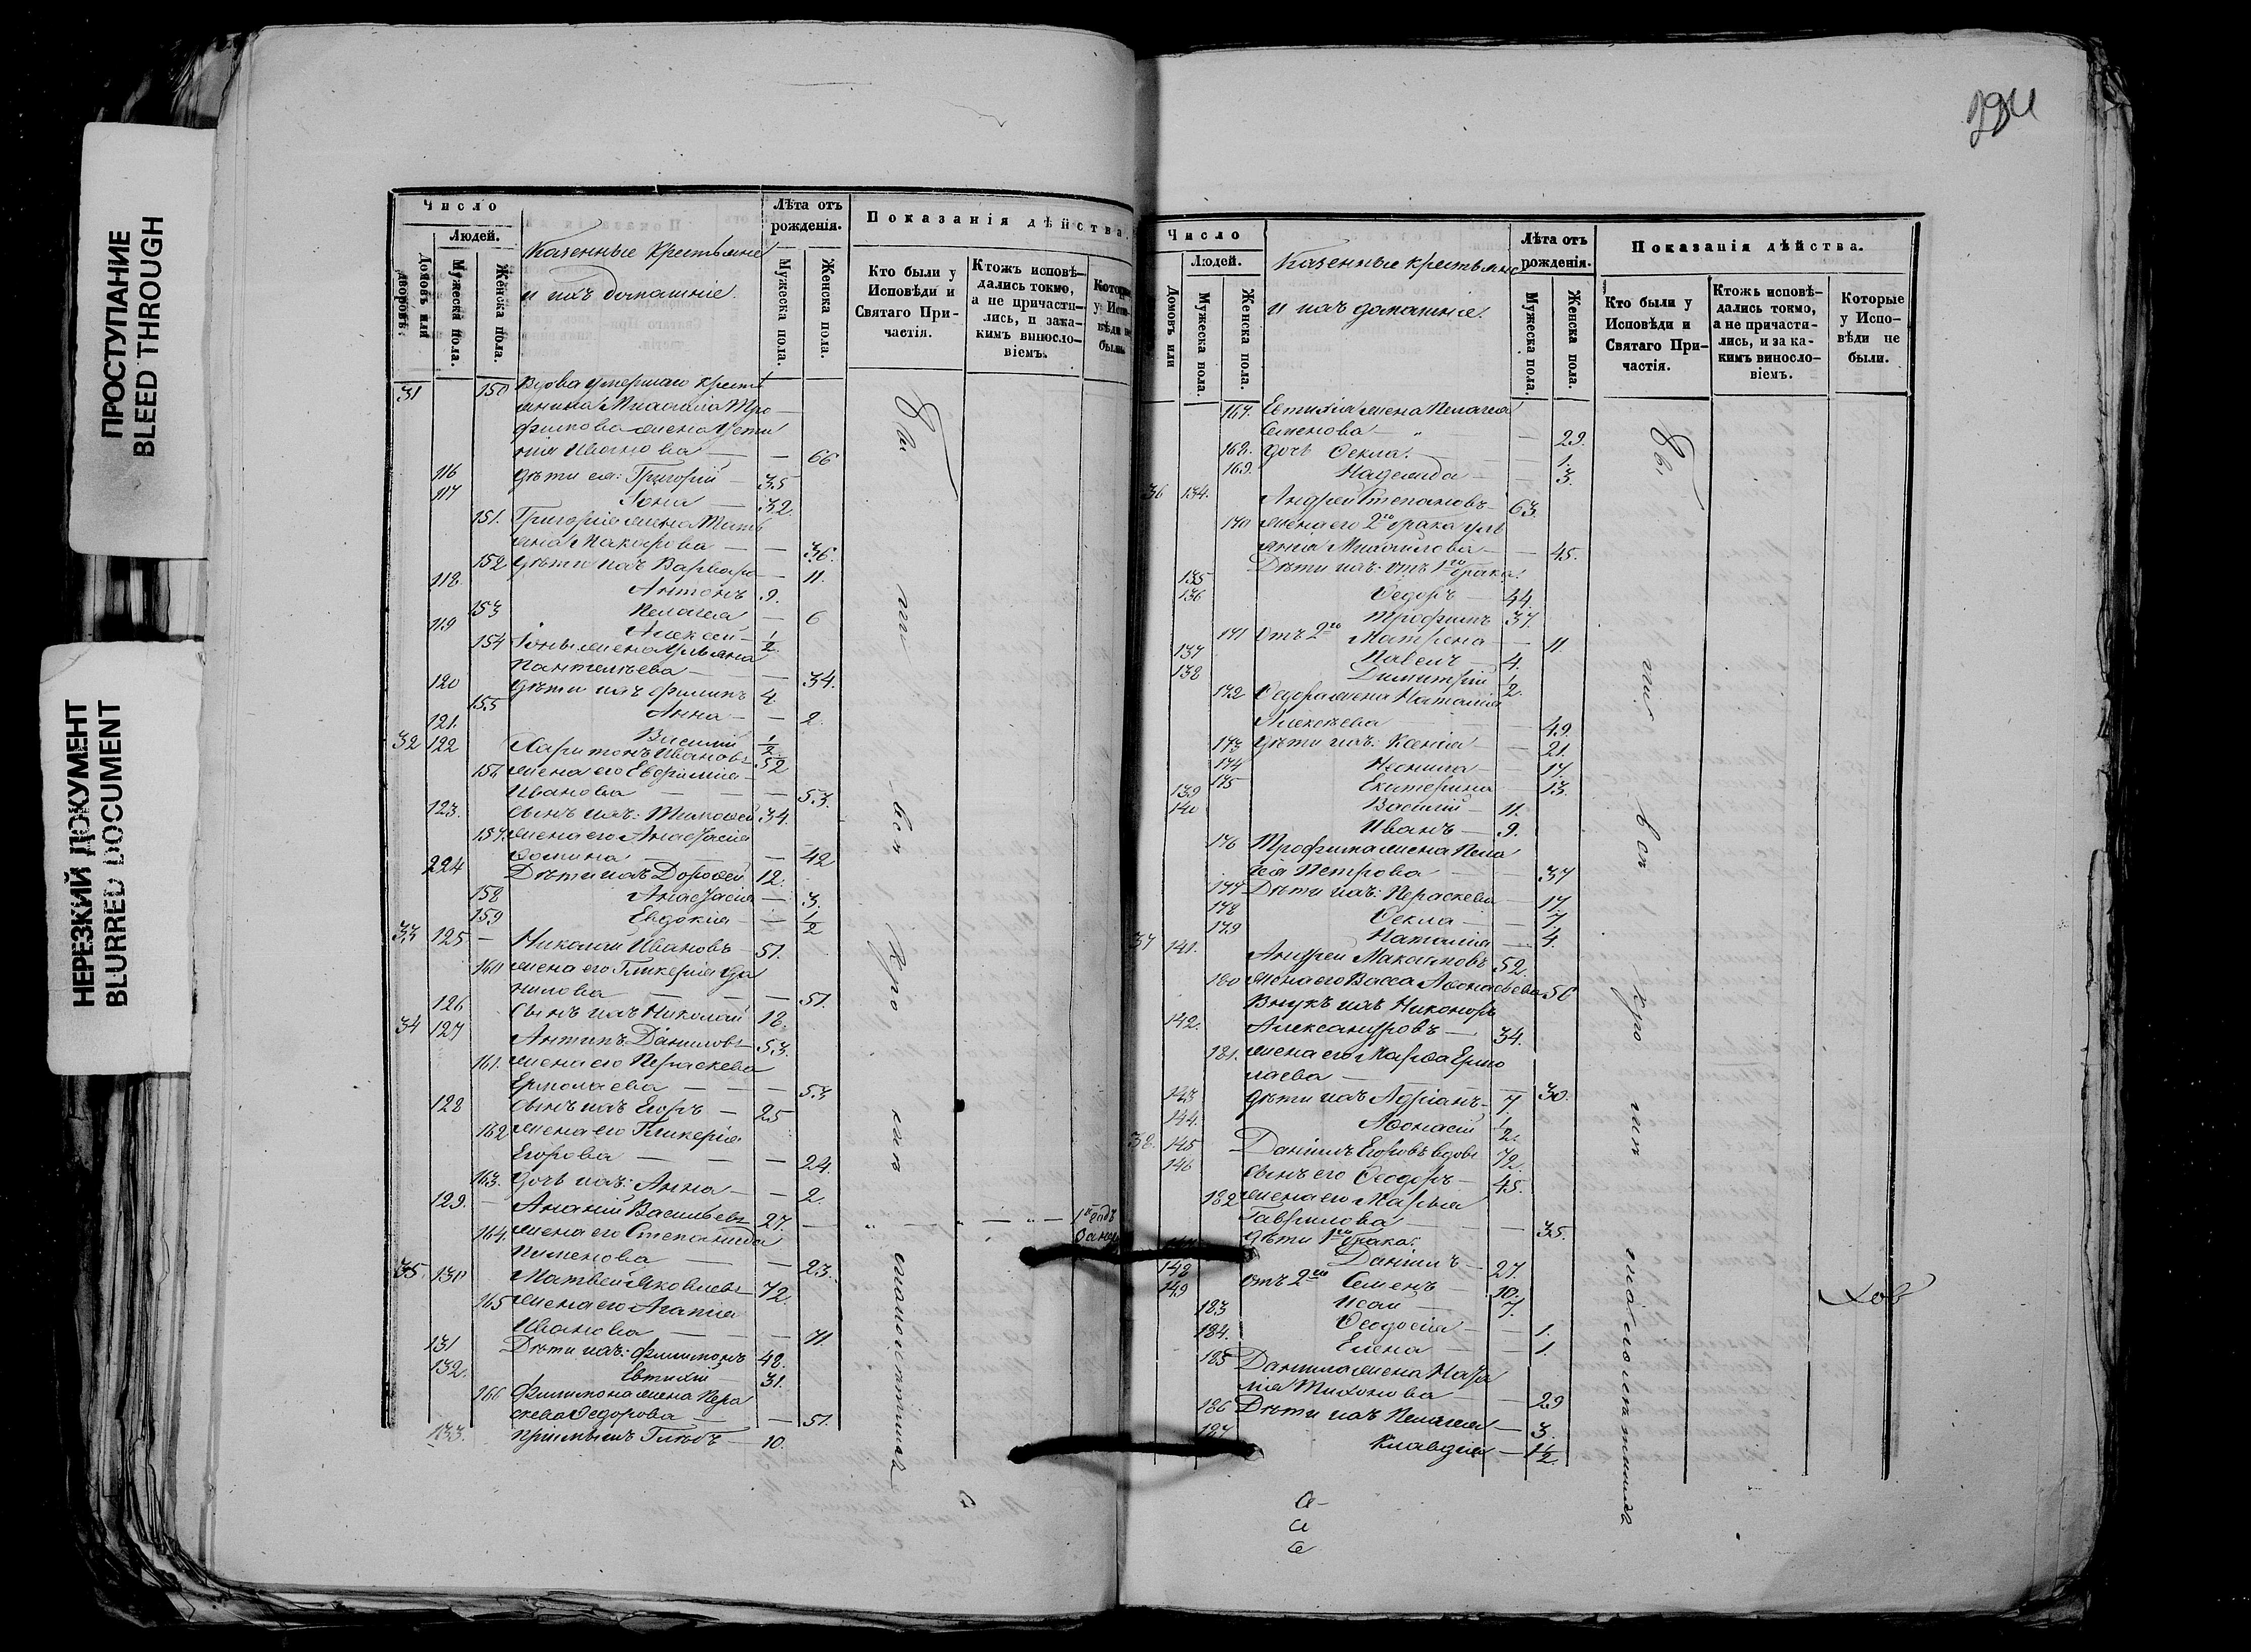 ПРОСТУПАНИЕ
BLEED THROUGH
НЕРЕЗКИЙ ДОКУМЕНТ
BLURRED DOCUMENT
Число
Людей.
Домовъ или дворовъ.
Мужеска пола.
Женска пола.
Казенные крестьяне
и ихъ домашніе.
Лѣта отъ рожденія.
Мужеска пола.
Женска пола.
Показанія дѣйства.
Кто были у Исповѣди и Святаго Причастія.
Ктожъ исповѣдались токмо, а не причастились, и за какимъ винословіемъ.
31 150 Вдова умершаго кресть
янина Михаила Тро
фимова жена Усти
нія Иванова — — 66
116 дѣти ея: Григорій — 35
117 Іона — 32.
151. Григорія жена Тать
яна Макарова — — 36.
152 дѣти ихъ Варвара — 11.
118. Антонъ 9.
153 Пелагея — 6
119 Алексѣй — 1/2
154 Іоны жена Ульяна
Пантелѣева — — 34.
120 дѣти ихъ Филипъ 4
155 Анна — — 2.
121. Василій 1/2
32 122 Харитонъ Ивановъ 52
156 жена его Евфимія —
Иванова — — — 53.
123. сынъ ихъ: Тимофей 34.
157. жена его Анастасія
Фомина — — — 42
224 Дѣти ихъ Дорофей 12.
158 Анастасія — 3.
159 Евдокія — — 1/2
33 125 — Николай Ивановъ — 51.
160 жена его Гликерія Да
нилова — — — 51.
126. Сынъ ихъ Николай 18.
34 127 Антипъ Даниловъ — 53.
161. жена его Пераскева
Ермолаева — — — 53
128 сынъ ихъ Егоръ — 25
162 жена его Гликерія
Егорова — — — 24.
163. дочь ихъ: Анна — — 2.
129. — Ананій Васильевъ 27. —
164 жена его Степанида
Пименова — — 23.
35. 130 Матвей Яковлевъ 72.
165 жена его Агапія
Иванова — — — 71.
131 Дѣти ихъ: Филимонъ 48.
132. Евтихій — 31.
166 Филимона жена Пера
скева Федорова — — 51.
133. пріемышъ Глѣбъ — 10.
Число
Людей.
Домовъ или
Мужеска пола.
Женска пола.
Казенные крестьяне
и ихъ домашніе.
Лѣта отъ рожденія.
Мужеска пола.
Женска пола.
Показанія дѣйства.
Кто были у Исповѣди и Святаго Причастія.
Ктожъ исповѣдались токмо, а не причастились, и за какимъ винословіемъ.
Которые у Исповѣди не были.
167. Евтихія жена Пелагея
Семенова — — 29.
168. дочь Фекла. — — 1.
169. Надежда — — 3.
36 134. Андрей Степановъ — 63.
170 жена его 2го брака Уль
янія Михайлова — — 45.
Дѣти ихъ: отъ 1го брака:
135 Федоръ — 44.
136 Трофимъ 37.
171 отъ 2го Матрена — — 11
137 Павелъ — 4.
138 Димитрій 1/2.
172 Федора жена Наталія
Алексѣева — — 49.
173 дѣти ихъ: Ксенія — — 21.
174 Неонила — 17.
175 Екатерина 13.
139 Василій — 11.
140 Иванъ — 9.
176 Трофима жена Пела
гія Петрова — — 37
177 Дѣти ихъ: Пераскева — 17.
178 Фекла — — 7.
179 Наталія — 4.
37 141. Андрей Максимовъ 52.
180 жена его Васса Афонасьева 56
Внукъ ихъ Никоноръ
142. Александровъ — 34.
181. жена его Марфа Ермо
лаева — — 30.
143 дѣти ихъ Адріанъ — 7.
144. Афонасій 1/2.
38. 145 Даніилъ Егоровъ вдовъ 72.
146 сынъ его Феодоръ — 45.
182 жена его Марья
Гаврилова — — 35.
дѣти 1го брака:
Даніилъ — 27.
148 отъ 2го Семенъ — 10.
149 Исаи — 7.
183 Феодосія — — 1.
184. Елена — — 1.
185 Данила жена Ната
лія Тихонова — — 29
186 Дѣти ихъ Пелагея — 3.
187 Клавдія — 1 1/2.